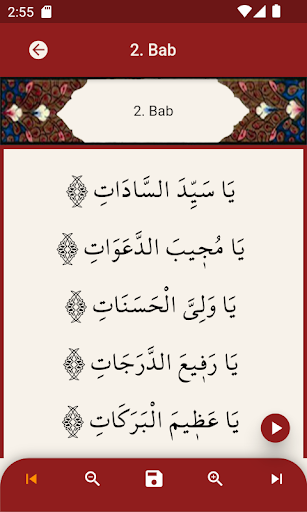 2:55
2. Bab
2. Bab
يَا سَيِّدَ السَّادَاتِ
يَا مُجٖيبَ الدَّعَوَاتِ
يَا وَلِىَّ الْحَسَنَاتِ
يَا رَفٖيعَ الدَّرَجَاتِ
يَا عَظٖيمَ الْبَرَكَاتِ